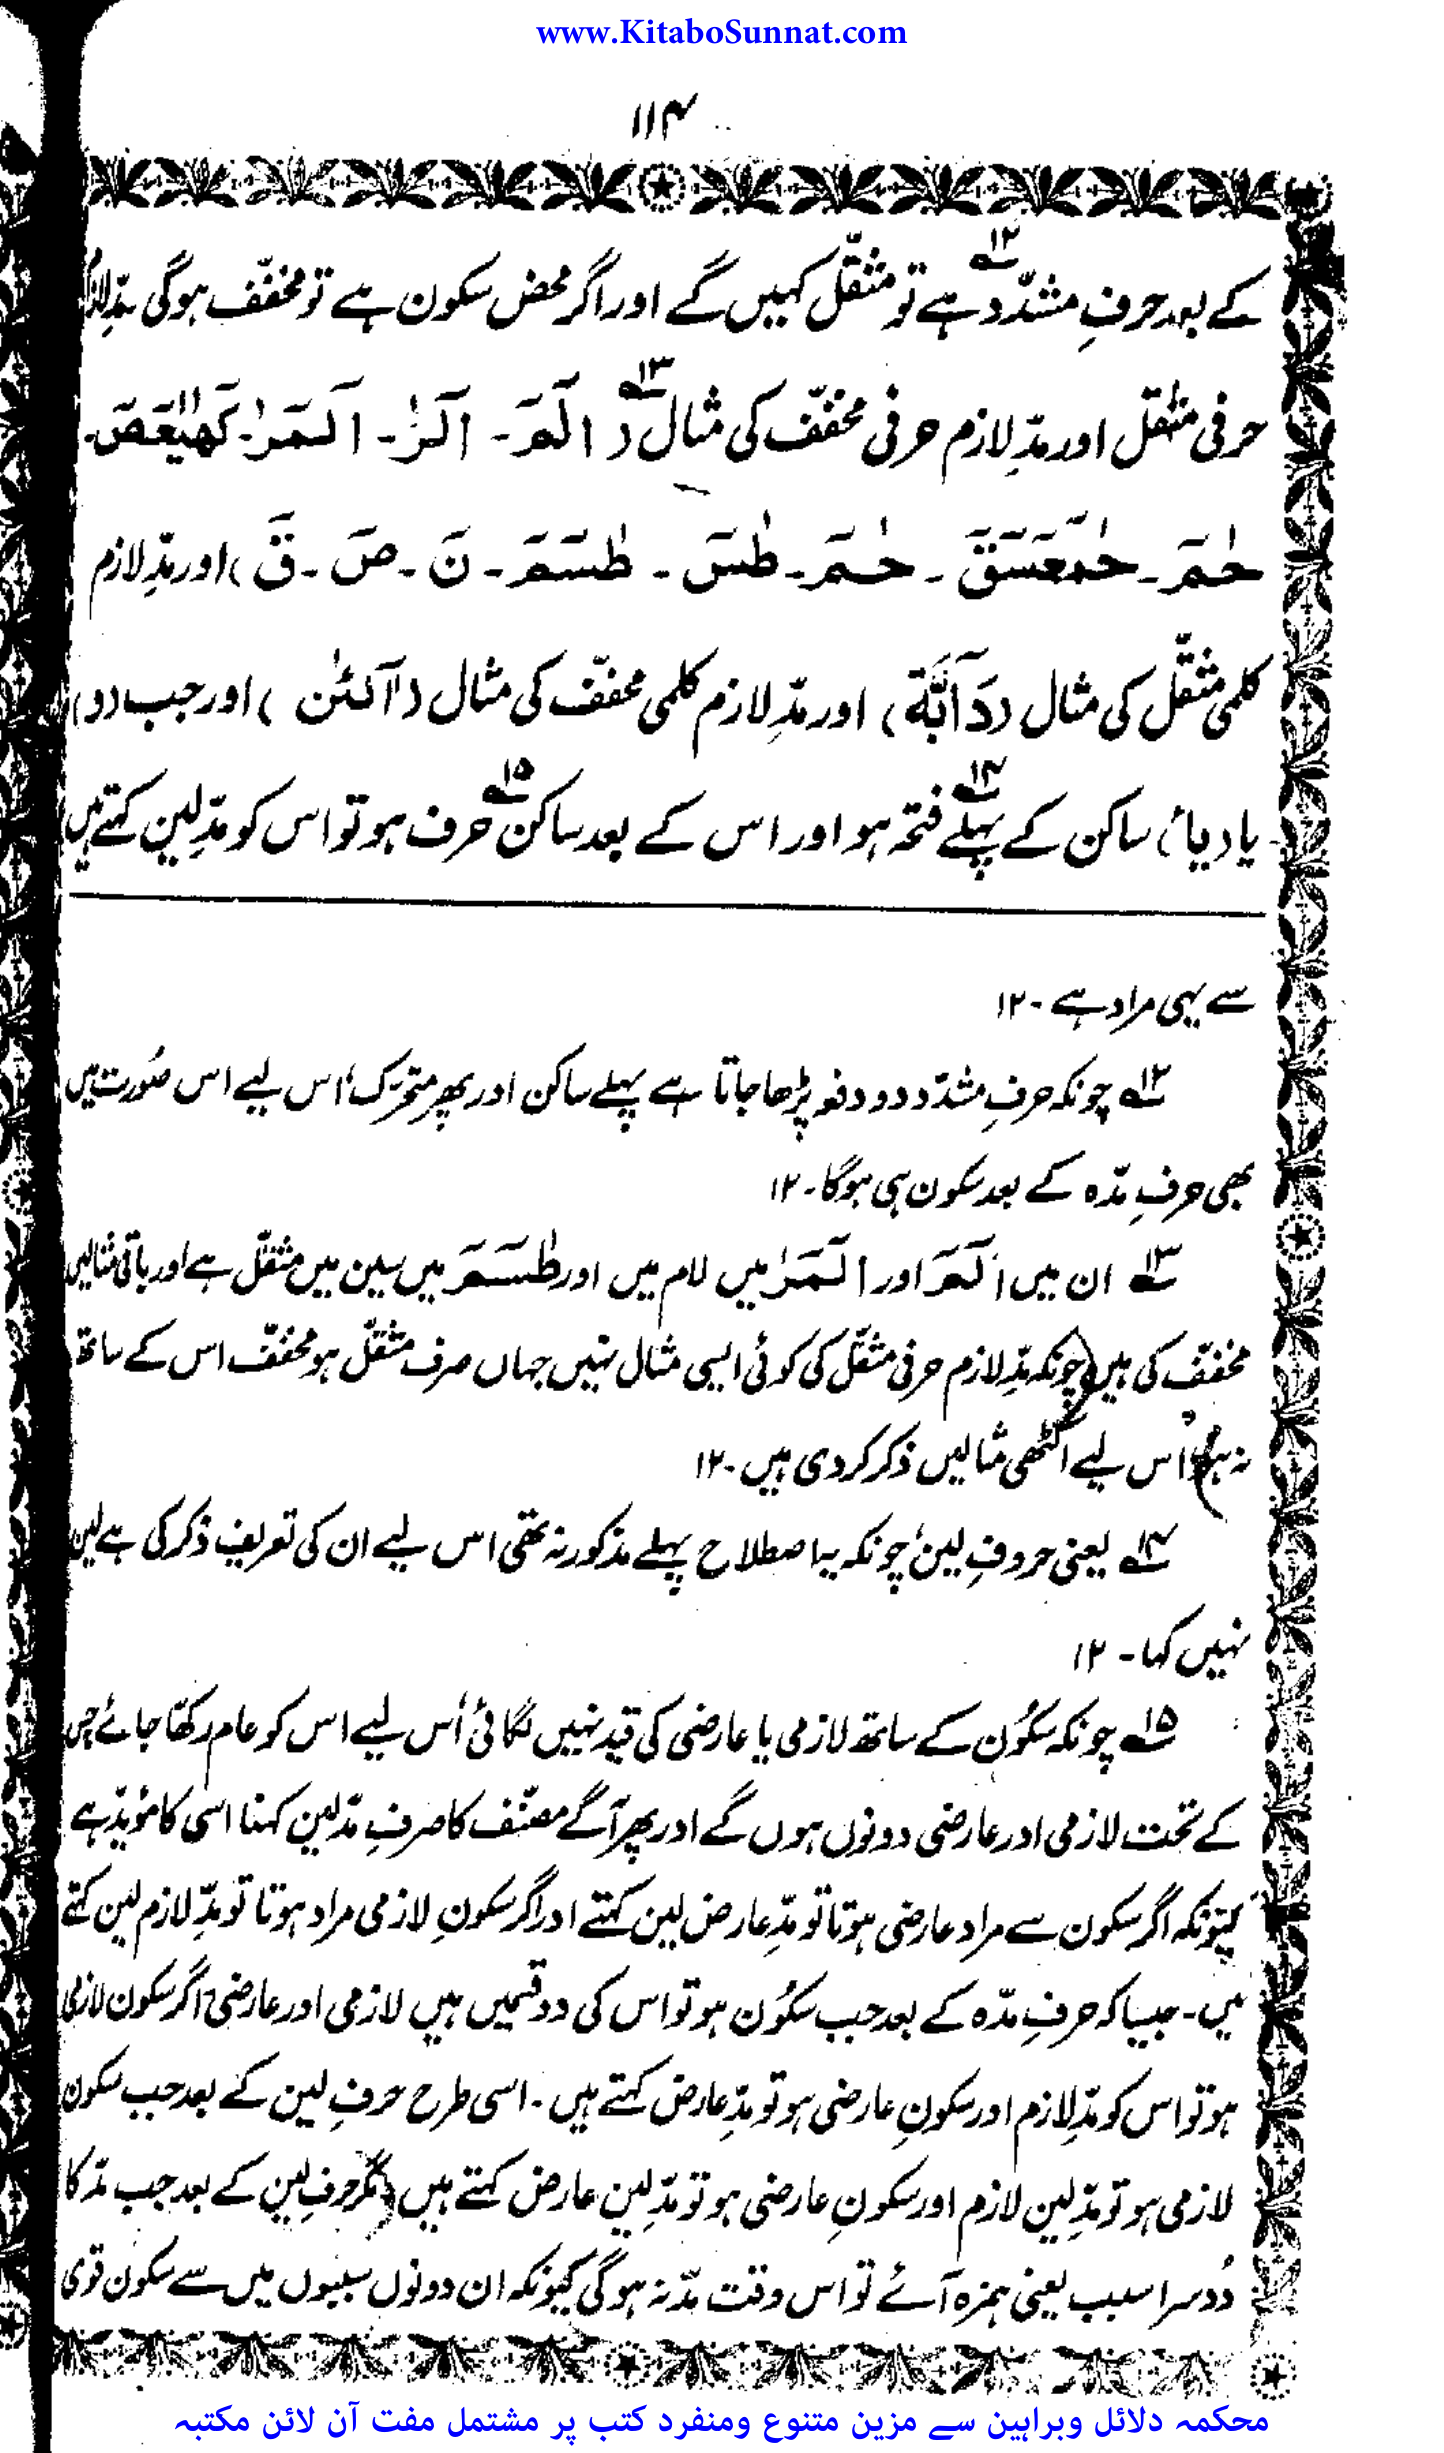 www.KitaboSunnat.com
۱۱۴
کے بعد حرفِ مشدّد ۱۲؎ ہے تو مثقّل کہیں گے اور اگر محض سکون ہے تو مخفّف ہوگی مدِّلازم
حرفی مثقل اور مدِّلازم حرفی مخفّف کی مثال ۱۳؎ (الٓمٓ۔ الٓرٰ۔ الٓمٓرٰ۔ كٓهٰيٰعٓصٓ۔
حٰمٓ۔ حٰمٓعٓسٓقٓ۔ حٰمٓ۔ طٰسٓ۔ طٰسٓمٓ۔ نٓ۔ صٓ۔ قٓ) اور مدِّلازم
کلمی مثقّل کی مثال (دَآبَّة) اور مدِّلازم کلمی مخفّف کی مثال (آلْئٰن) اور جب (و)
یا (یا) ساکن کے پہلے ۱۴؎ فتحہ ہو اور اس کے بعد ساکن ۱۵؎ حرف ہو تو اس کو مدِّلین کہتے ہیں
سے یہی مراد ہے۔ ۱۲
۱۲؎ چونکہ حرفِ مشدّد دو دفعہ پڑھا جاتا ہے پہلے ساکن اور پھر متحرّک، اس لیے اس صُورت میں
بھی حرفِ مدّہ کے بعد سکون ہی ہوگا۔ ۱۲
۱۳؎ ان میں الٓمٓ اور الٓمٓرٰ میں لام میں اور طٰسٓمٓ میں سین میں مثقّل ہے اور باقی مثالیں
مخفّف کی ہیں (چونکہ مدِّلازم حرفی مثقّل کی کوئی ایسی مثال نہیں جہاں صرف مثقّل ہو مخفّف اس کے ساتھ
نہ ہو) اس لیے اکٹھی مثالیں ذکر کر دی ہیں۔ ۱۲
۱۴؎ یعنی حروفِ لین، چونکہ یہ اصطلاح پہلے مذکور نہ تھی اس لیے ان کی تعریف ذکر کی ہے لین
نہیں کہا۔ ۱۲
۱۵؎ چونکہ سکُون کے ساتھ لازمی یا عارضی کی قید نہیں لگائی اُس لیے اس کو عام رکھا جائے جس
کے تحت لازمی اور عارضی دونوں ہوں گے اور پھر آگے مصنّف کا صرفِ مدّلین کہنا اسی کا مؤیّد ہے
کیونکہ اگر سکون سے مراد عارضی ہوتا تو مدِّعارض لین کہتے اور اگر سکونِ لازمی مراد ہوتا تو مدِّ لازم لین کہتے
ہیں۔ جیسا کہ حرفِ مدّہ کے بعد جب سکُون ہو تو اس کی دو قسمیں ہیں لازمی اور عارضی، اگر سکون لازمی
ہو تو اس کو مدِّلازم اور سکونِ عارضی ہو تو مدِّعارض کہتے ہیں۔ اسی طرح حرفِ لین کے بعد جب سکون
لازمی ہو تو مدِّلین لازم اور سکونِ عارضی ہو تو مدِّلین عارض کہتے ہیں (مگر حرفِ لین کے بعد جب مد کا
دُوسرا سبب یعنی ہمزہ آئے تو اس وقت مدّ نہ ہوگی کیونکہ ان دونوں سببوں میں سے سکون قوی
محکمہ دلائل وبراہین سے مزین متنوع ومنفرد کتب پر مشتمل مفت آن لائن مکتبہ